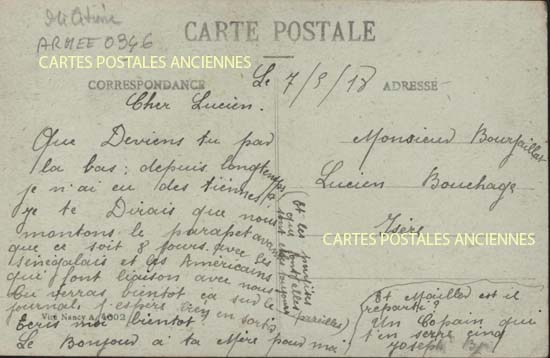 Militaria
ARMEE 0346
CARTE POSTALE
CARTES POSTALES ANCIENNES
CORRESPONDANCE
ADRESSE
Le 7/5/18
Cher Lucien.
Que Deviens tu par
la bas; depuis longtemps
je n'ai eu des tiennes.
je te Dirais que nous
montons le parapet avant
que ce soit 8 jours. avec les
Sénégalais et les Américains
qui font liaison avec nous
tu verras bientot ça sur le
journal j'espère en sortir
Ecris moi bientot
Le Bonjour à ta Mère pour moi
Vice Nancy A. 1002
Et les
que font elles
sont elles toujours
pareilles
Monsieur
Lucien Bouchage
Isère
CARTES POSTALES ANCIENNES
Et Maillet est il
reparti?
Un Copain qui
t'en serre cinq
Joseph